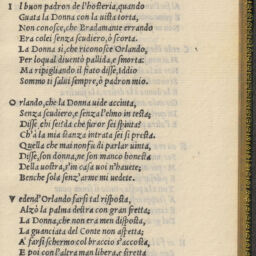 I l buon padron de l'hosteria, quando
Guata la Donna con la uista torta,
Non conosce, che Bradamante errando
Era colei senza scudiero, ò scorta.
La Donna sì, che riconosce Orlando,
Per loqual diuentò pallida, e smorta:
Ma ripigliando il fiato disse, Iddio
Sommo ti salui sempre, ò padron mio.
O rlando, che la Donna uide accinta,
Senza scudiero, e senza l'elmo in testa;
Disse chi se'tu da che furor sei spinta?
Ch'à la mia stanza intrata sei sì presta.
Quella che mai non fu di parlar uinta,
Disse, son donna, ne son manco honesta
Della uostra, s'in casa uoi n'hauete;
Benche sola senz'arme mi uedete.
V edend'Orlando farsi tal risposta,
Alzò la palma destra con gran fretta:
La Donna, che non era men disposta,
La guanciata del Conte non aspetta;
A' farsi schermo col braccio s'accosta,
E poi con l'altra man libera, e stretta